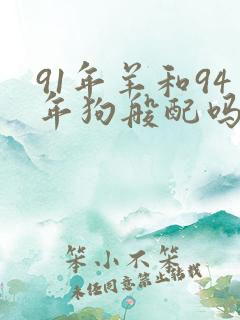 91年羊和94
年狗般配吗
笨小不笨
未经同意禁止转载